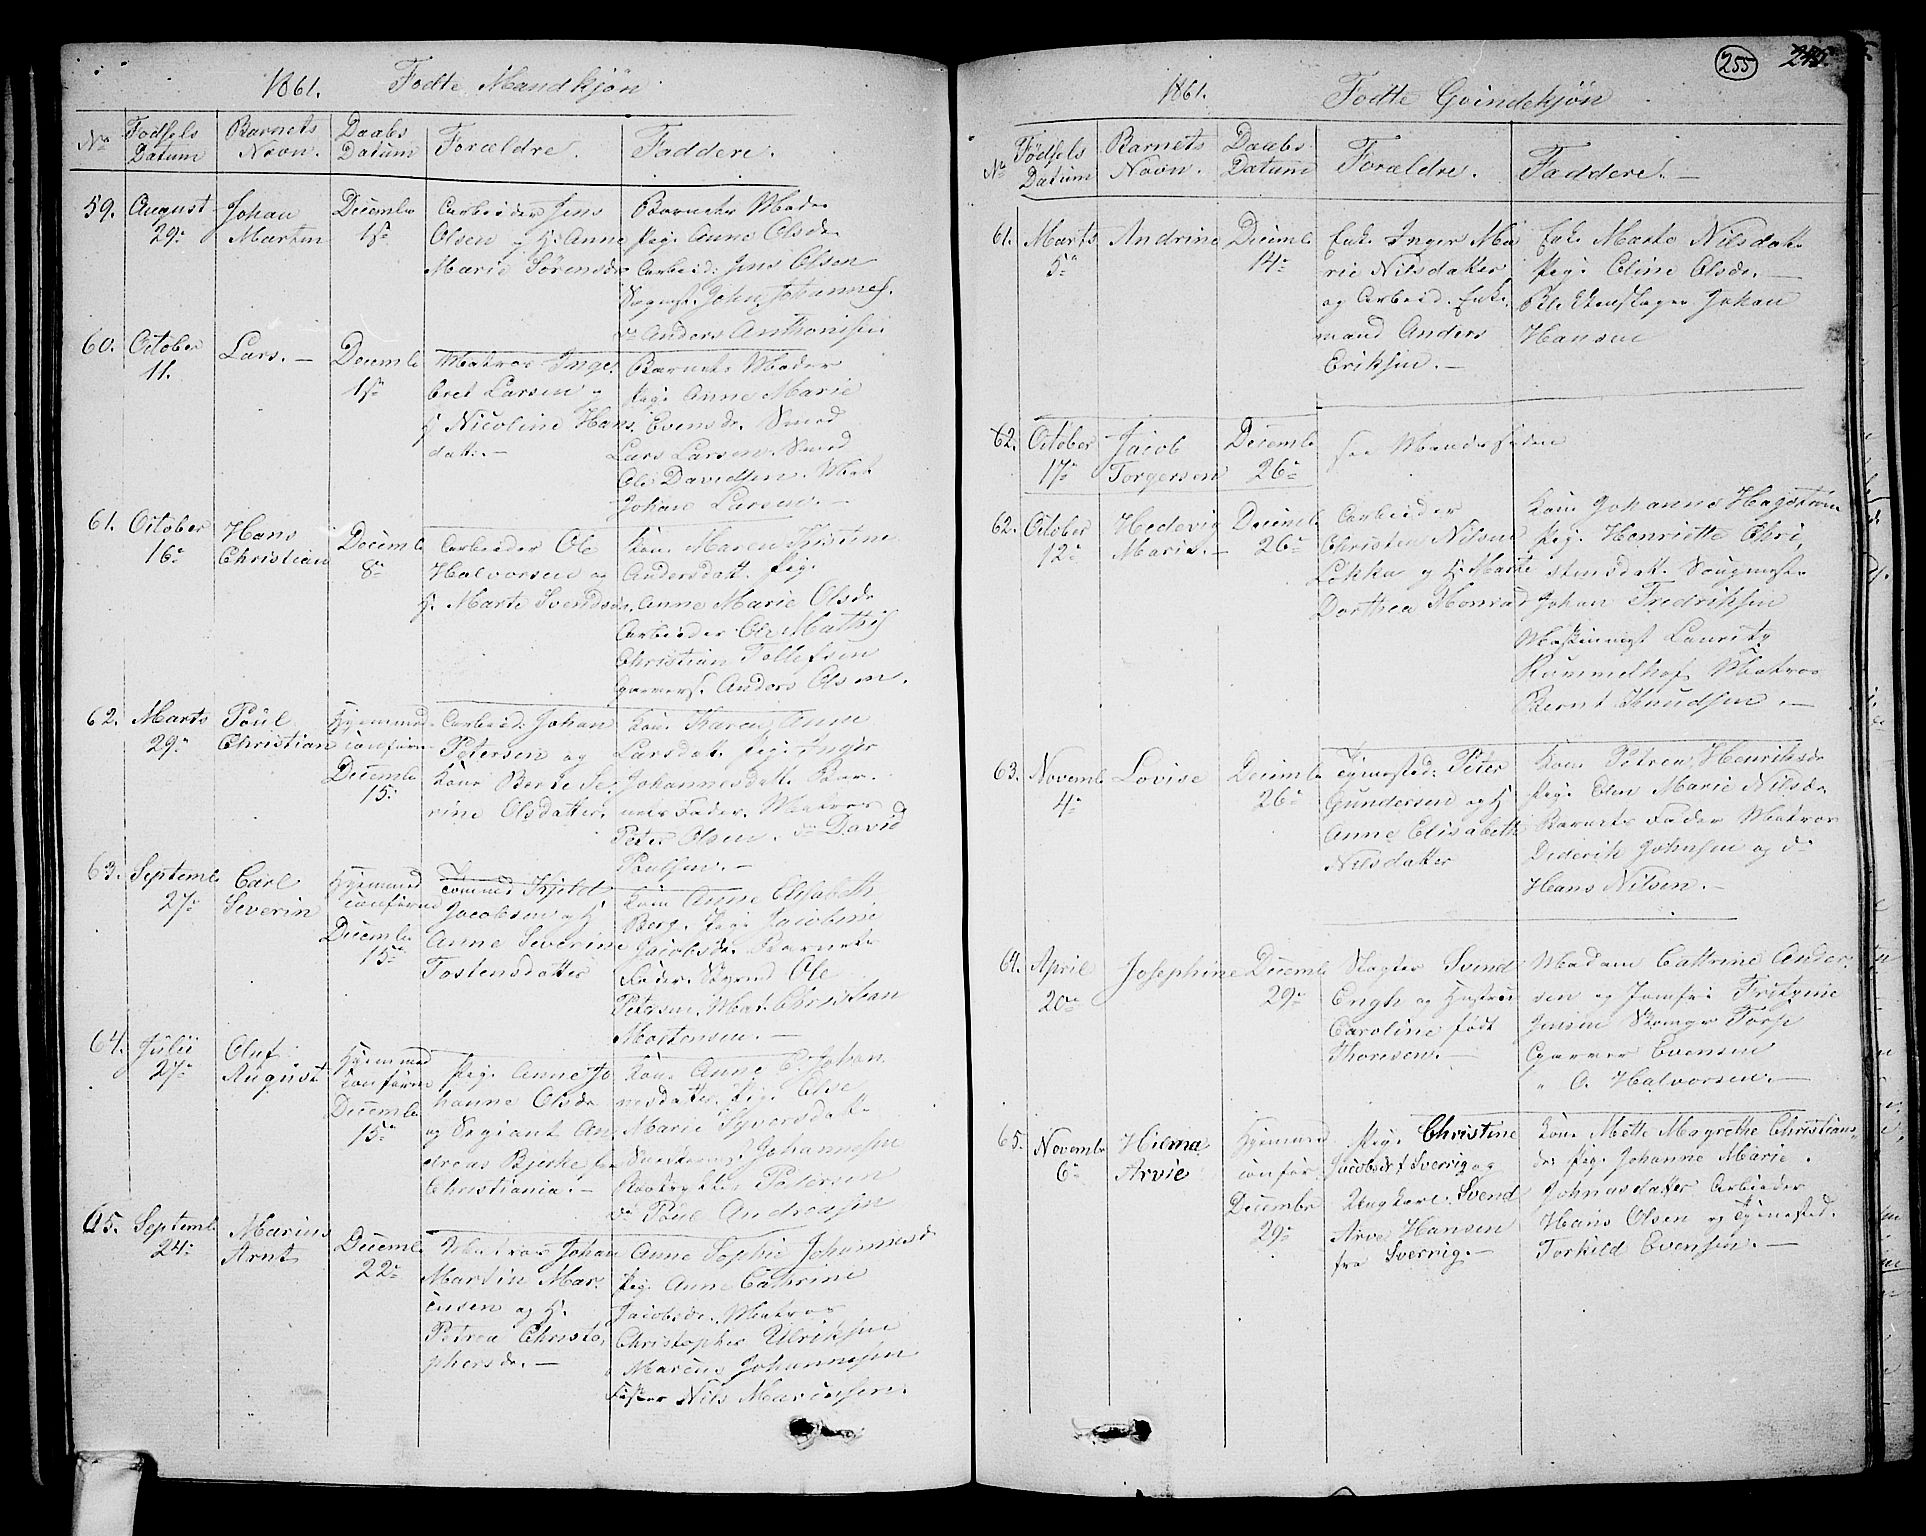 1861. Fødte Mandkjøn
No Fødsels Datum Barnets Navn. Daabs Datum Forældre. Faddere.
59. August 29de Johan Martin Decembr 1ste
Arbeider Jens
Olsen og H. Anne
Marie Sørensdr
Barnets Moder
Pige Anne Olsdr
Arbeid: Jens Olsen
John Johannes.
do Anders Anthonisen
60. October 11. Lars. — Decembr 1ste
Matros Inge-
bret Larsen og
H Nicoline Hans
datt. —
Barnets Moder
Pige Anne Marie
Evensdr. Smed
Lars Larsen. Smed
Ole Davidsen. Mat
Johan Larsen. —
61. October 16de Hans Christian Decembr 8de
Arbeider Ole
Halvorsen og
H. Marte Svendsdr.
Kone Maren Kirstine
Andersdatt. Pige
Anne Marie Olsdr
Arbeider Ole Mathis
Christian Tollefsen
Garvers. Anders Olsen.
62. Marts 29de Poul Christian Hjemmed. confirm Decembr 15.
Arbeid: Johan
Petersen og
Kone Berte Se-
rine Olsdatter.
Kone Karen Anne
Larsdatt. Pige Inger
Johannesdatt. Bar-
nets Fader. Matros
Peter Olsen. do David
Poulsen. —
63. Septembr 27de Carl Severin Hjemmed confirm Decembr 15de
Tommed Kjeld
Jacobsen og H
Anne Severine
Tostensdatter
Kone Anne Elisabeth
Berg. Pige Jacobine
Jacobsdr. Barnets
Fader. Styrmd Ole
Petersen. Mat. Christian
Mortensen. —
64. Julii 27de Oluf August Hjemmed confirm Decembr 15de
Pige Anne Jo
hanne Olsdr
og Sergiant An
dreas Bjerke fra
Christiania. —
Kone Anne E. Johan
nesdatter. Pige Else
Marie Syversdatt.
Johannesen
Petersen
do Poul Andreasen
65. Septembr 24de Marius Arnt Decembr 22de
Matros Johan
Martin Mar-
cusen og H.
Petrea Christo
phersdr. —
Anne Sophie Johannesd
Pige Anne Cathrine
Jacobsdr. Matros
Christopher Ulriksen
Marcus Johannesen
Fisker Nils Marcusen.
255 245.
1861. Fødte Qvindekjøn
No Fødsels Datum Barnets Navn. Daabs Datum Forældre. Faddere. —
61. Marts 5te Andrine Decembr 14de
Enke Inger Ma
rie Nilsdatter
og Arbeid. Enke
mand Anders
Eriksen. —
Enke Marte Nilsdatt.
Pige Eline Olsdr. —
Johan
Hansen
62. October 17de Jacob Torgersen Decembr 26de
see Mandssiden
62. October 12te Hedevig Marie. — Decembr 26de
Arbeider
Christen Nilsen
Løkka og H. Marte
Dorthea Monrad
Kone Johanne Hagstrøm
Pige Henriette Chri
stensdatt. Saugmest.
Johan Fredriksen
Lauritz
Rømmelhof Matros
Bernt Knudsen. —
63. Novembr 4de Lovise Decembr 26de
Tjenested: Peter
Gundersen og H
Anne Elisabeth
Nilsdatter
Kone Petrea Henriksdr
Pige Elen Marie Nilsdr
Barnets Fader Matros
Diderik Johnsen og do
Hans Nilsen. —
64. April 20de Josephine Decembr 29de
Slagter Svend
Engh og Hustrue
Caroline født
Thoresen. —
Madam Cathrine Ander-
sen og Jomfru Fritzine
Jensen Torp
Garver Evensen
" O. Halvorsen. —
65. Novembr 6te Hilma Arvie Hjemmed confir Decembr 29de
Pige Christine
Jacobsdt Sverrig og
Ungkarl: Svend
Arve Hansen
fra Sverrig. —
Kone Mette Magrethe Christians-
dr. Pige Johanne Marie
Johnasdatter Arbeider
Hans Olsen og Tjenested.
Torkild Evensen. —